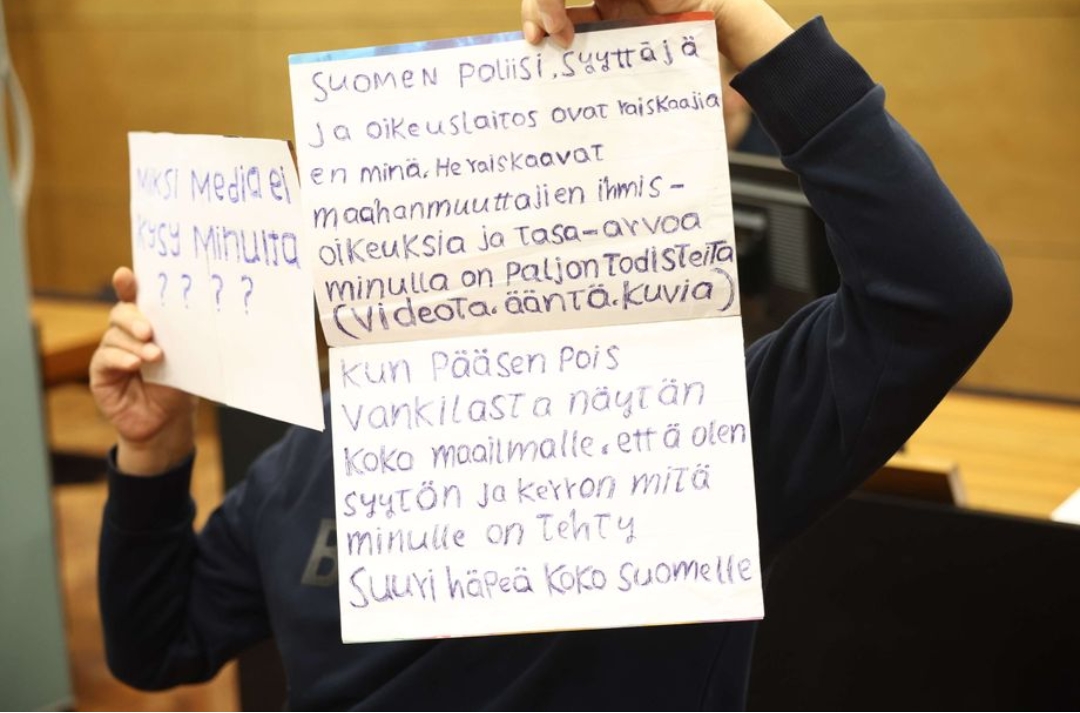 MIKSI Media ei
kysy Minulta
? ? ? ?
SUOMEN POLIISI, Syyttäjä
ja oikeuslaitos ovat raiskaajia
en minä. He raiskaavat
maahanmuuttajien ihmis-
oikeuksia ja Tasa-arvoa
minulla on Paljon Todisteita
(Videota. ääntä. kuvia)
kun Pääsen Pois
vankilasta näytän
koko maailmalle, että olen
syytön ja kerron mitä
minulle on Tehty
Suuri häpeä koko Suomelle
B